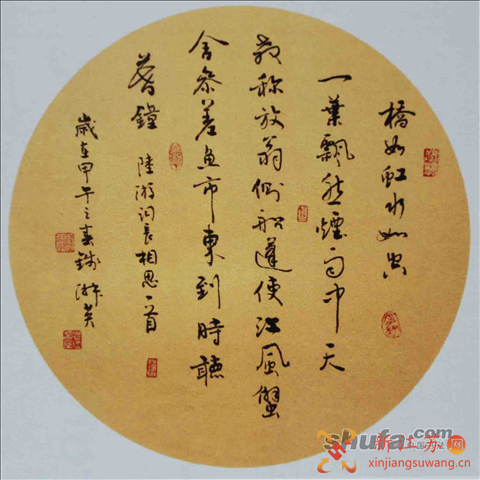 橋如虹水如空
一葉飄然煙雨中天
教稱放翁側船蓬使江風蟹
舍參差魚市東到時聽
暮鐘
陸游詞長相思一首
歲在甲午之春
shufa.com
新江苏网
xinjiangsuwang.cn